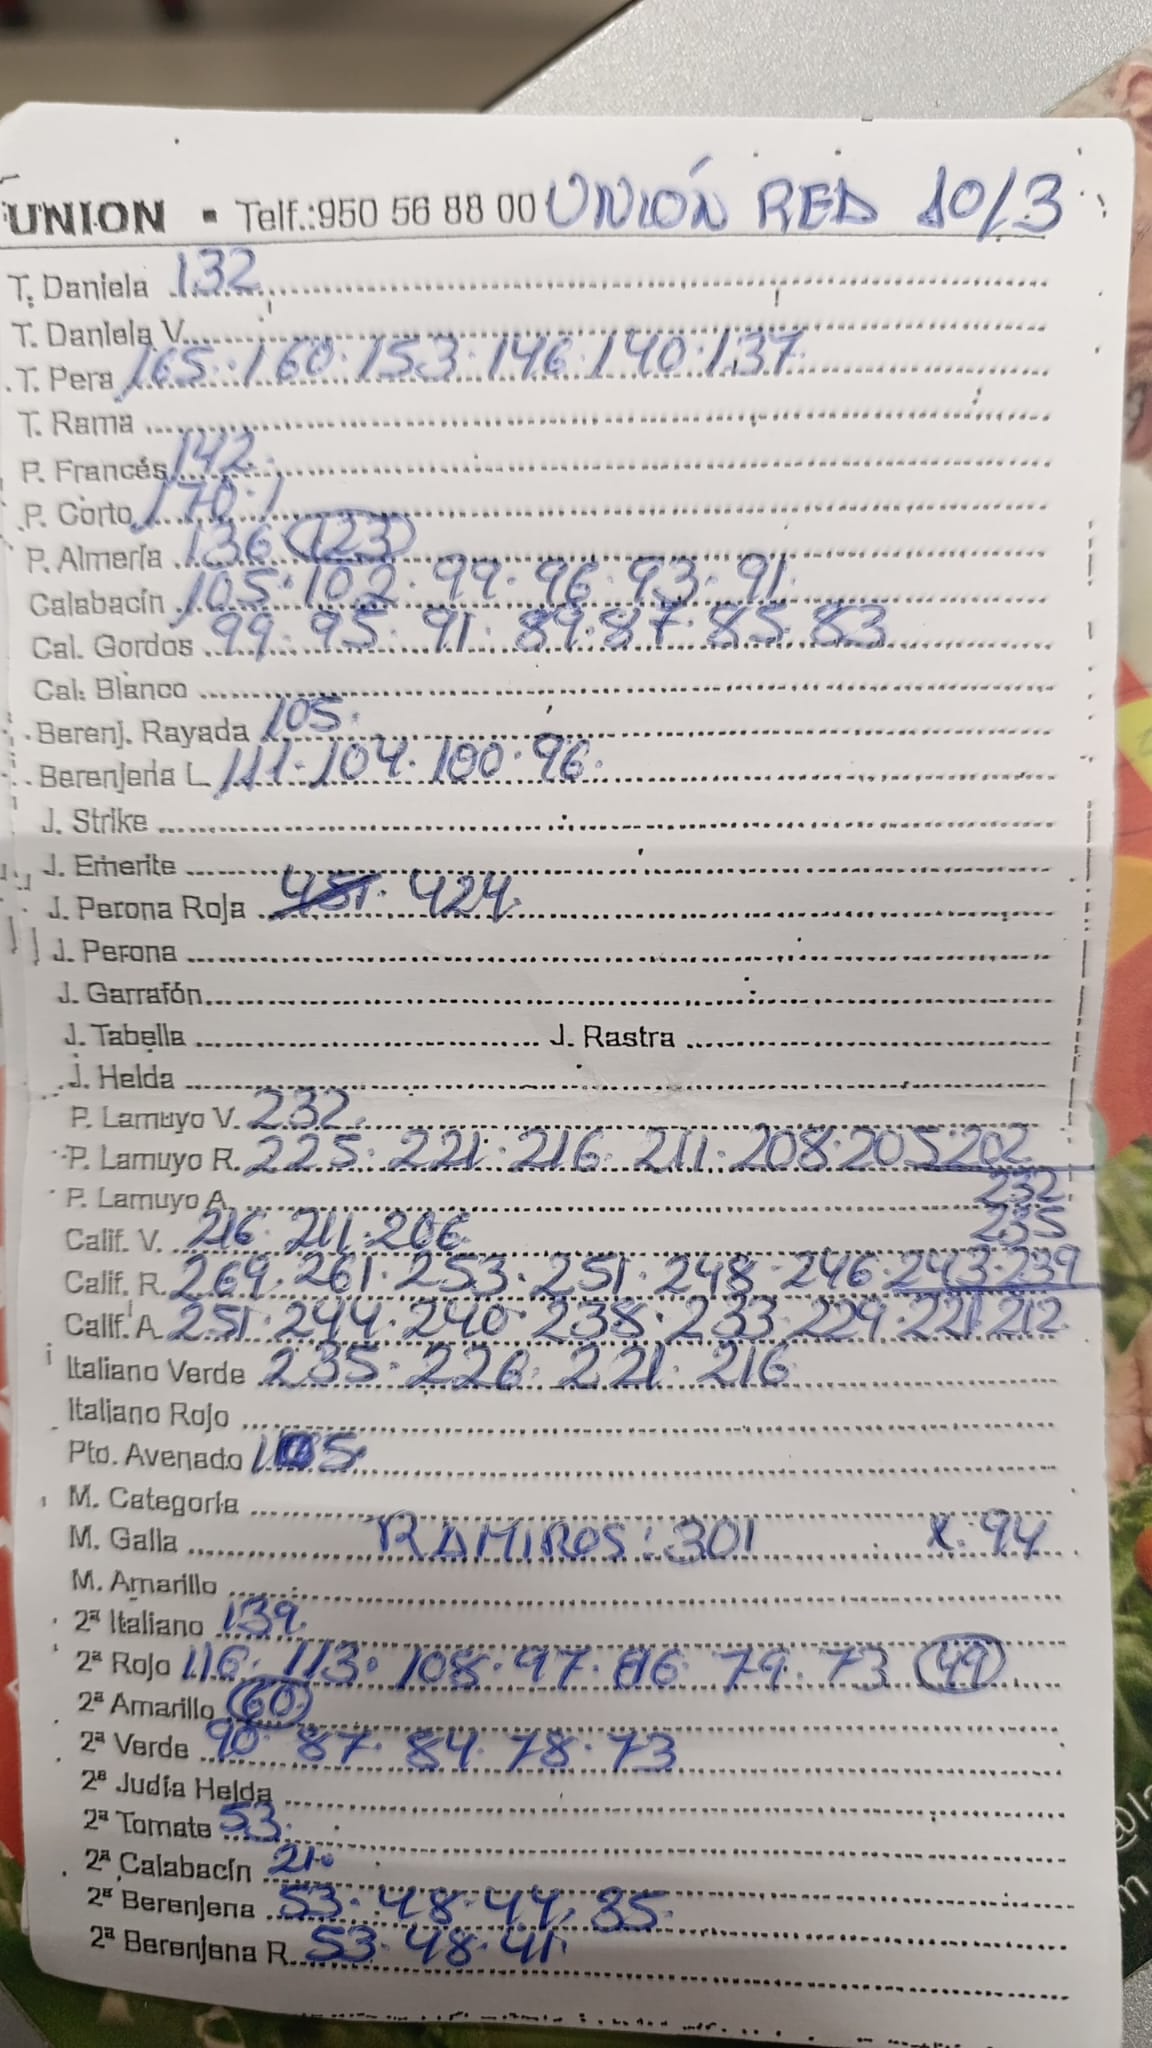 UNION - Telf.:950 56 88 00 UNIÓN RED 10/3
T. Daniela 132
T. Daniela V.
T. Pera 165 · 160 · 153 · 146 · 140 · 137
T. Rama
P. Francés 142
P. Corto 170
P. Almería 136 123
Calabacín 105 · 102 · 99 · 96 · 93 · 91
Cal. Gordos 99 · 95 · 91 · 89 · 87 · 85 · 83
Cal. Blanco
Berenj. Rayada 105
Berenjena L. 111 · 104 · 100 · 96
J. Strike
J. Emerite
J. Perona Roja 451 · 424
J. Perona
J. Garrafón
J. Tabella J. Rastra
J. Helda
P. Lamuyo V. 232
P. Lamuyo R. 225 · 221 · 216 · 211 · 208 · 205 · 202
P. Lamuyo A. 232
Calif. V. 216 · 211 · 206 235
Calif. R. 269 · 261 · 253 · 251 · 248 · 246 · 243 · 239
Calif. A. 251 · 244 · 240 · 238 · 233 · 229 · 221 · 212
Italiano Verde 235 · 226 · 221 · 216
Italiano Rojo
Pto. Avenado 105
M. Categoría
M. Galla RAMIROS: 301 X: 94
M. Amarillo
2ª Italiano 139
2ª Rojo 116 · 113 · 108 · 97 · 86 · 79 · 73 49
2ª Amarillo 60
2ª Verde 90 · 87 · 84 · 78 · 73
2ª Judía Helda
2ª Tomate 53
2ª Calabacín 21
2ª Berenjena 53 · 48 · 44 · 35
2ª Berenjena R. 53 · 48 · 41